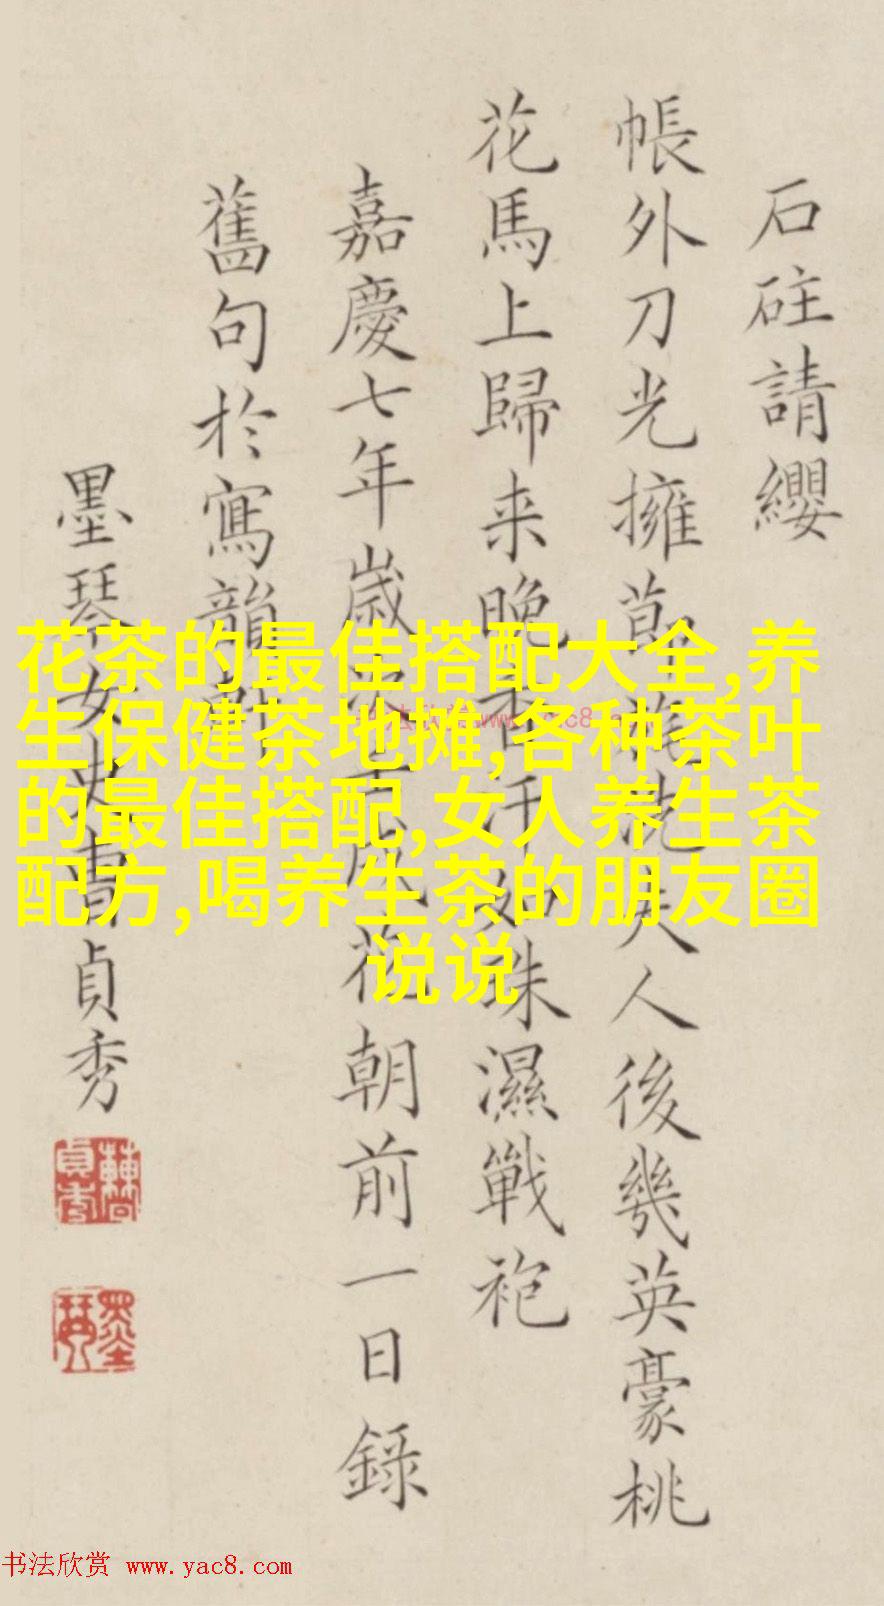 石砫請纓
帳外刀光擁莭旄洗夫人後幾英豪桃
花馬上歸来晚香汗如珠濕戰袍
嘉慶七年歲次壬戌花朝前一日錄
舊句於寫韻軒
墨琴女史曹貞秀
花茶的最佳搭配大全,养
生保健茶地摊,各种茶叶
的最佳搭配,女人养生茶
配方,喝养生茶的朋友圈
说说
书法欣赏 www.yac8.com